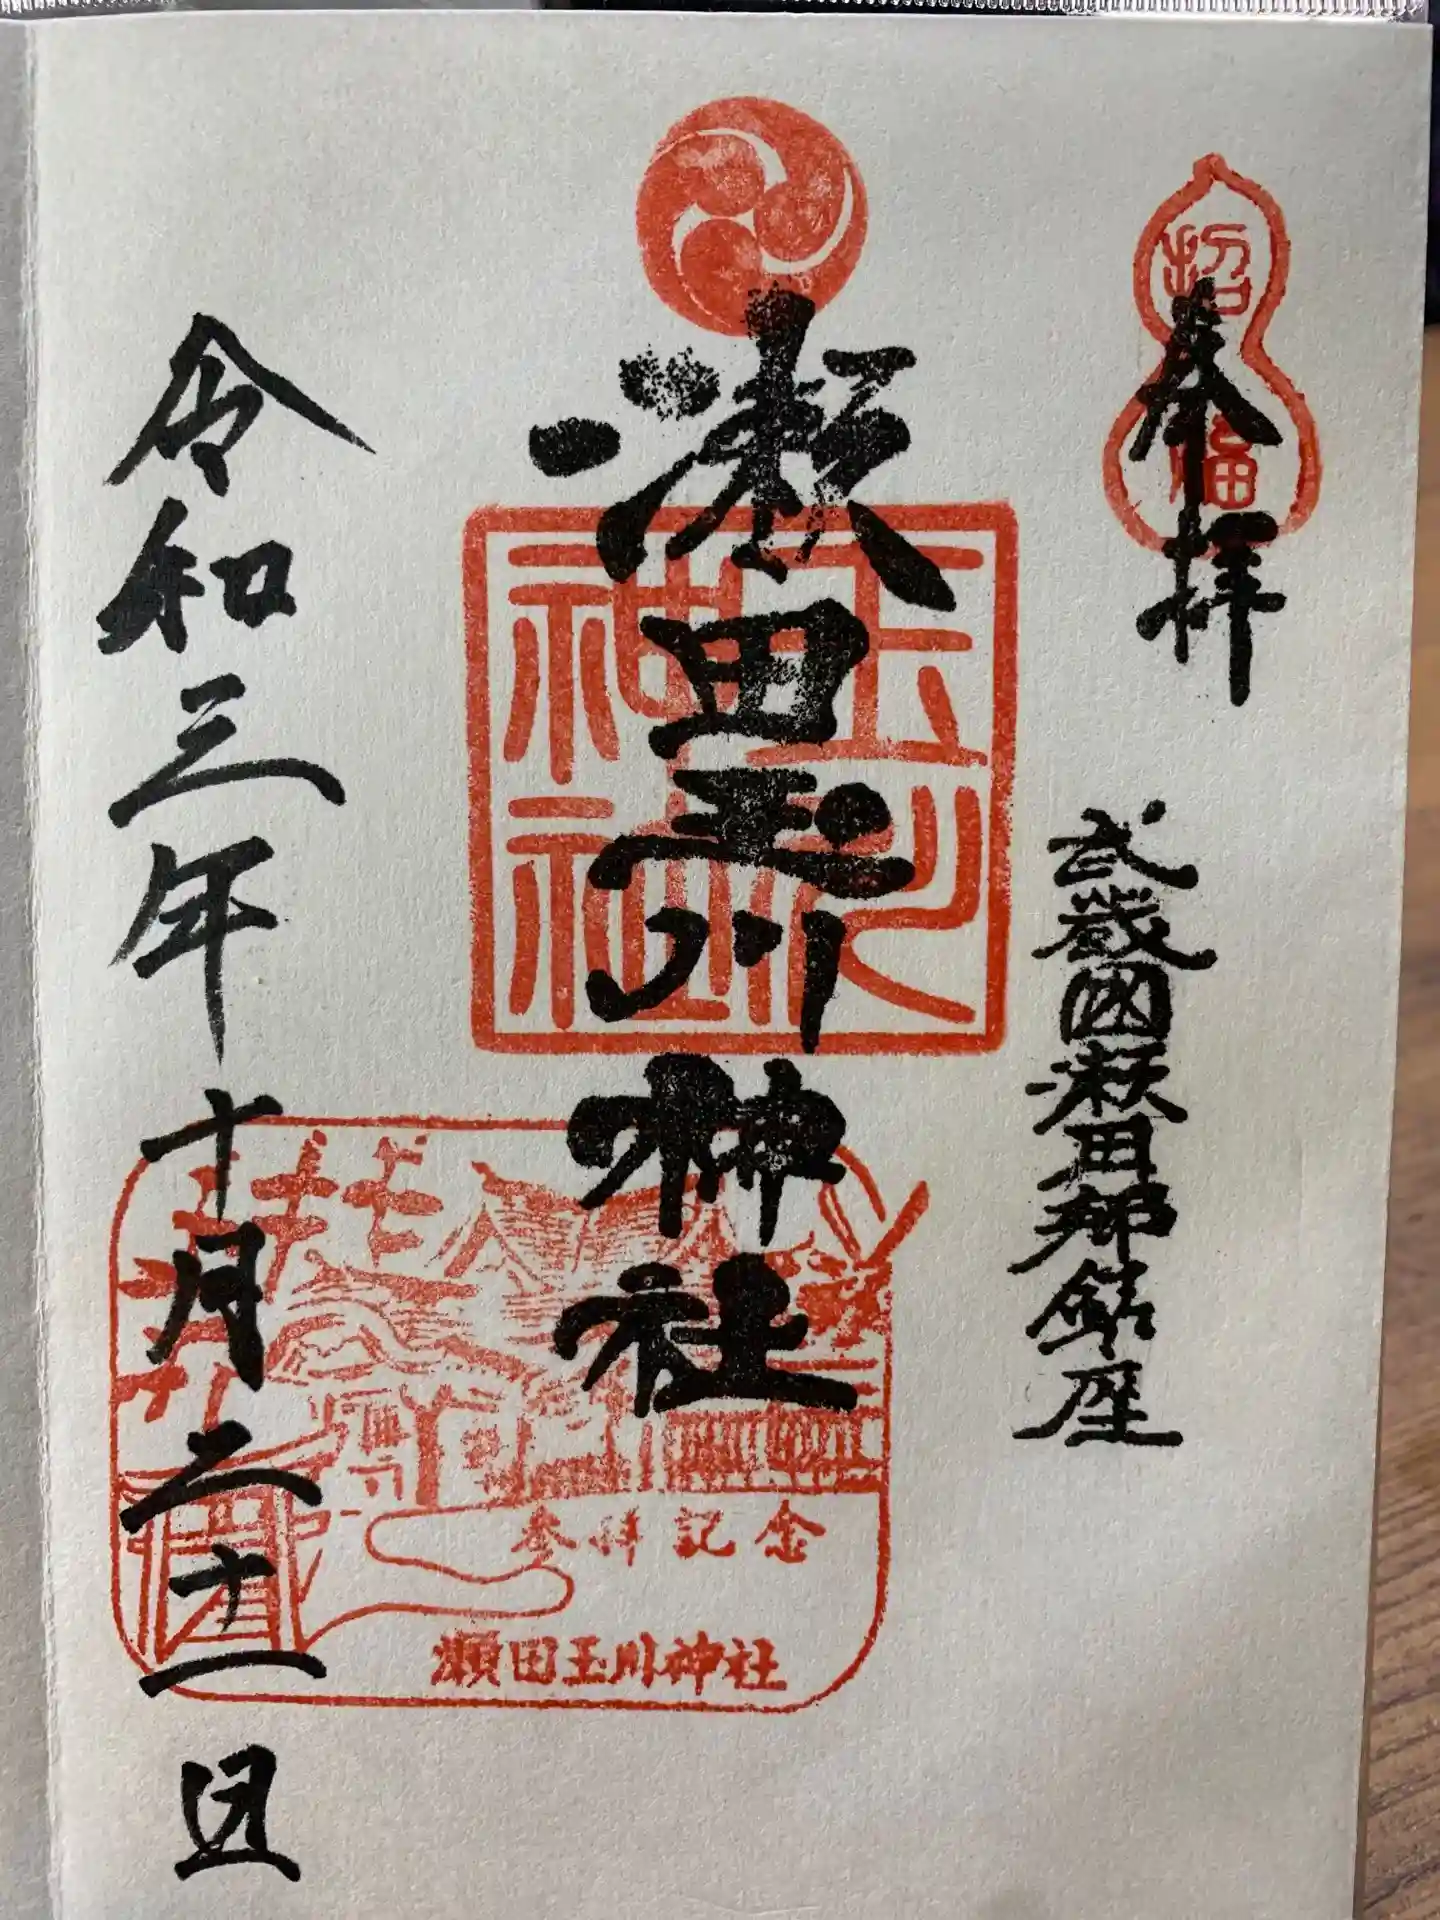 招福
奉拝
武蔵國瀬田郷鎮座
瀬田玉川神社
玉川
神社
参拝記念
瀬田玉川神社
令和三年十月二十一日